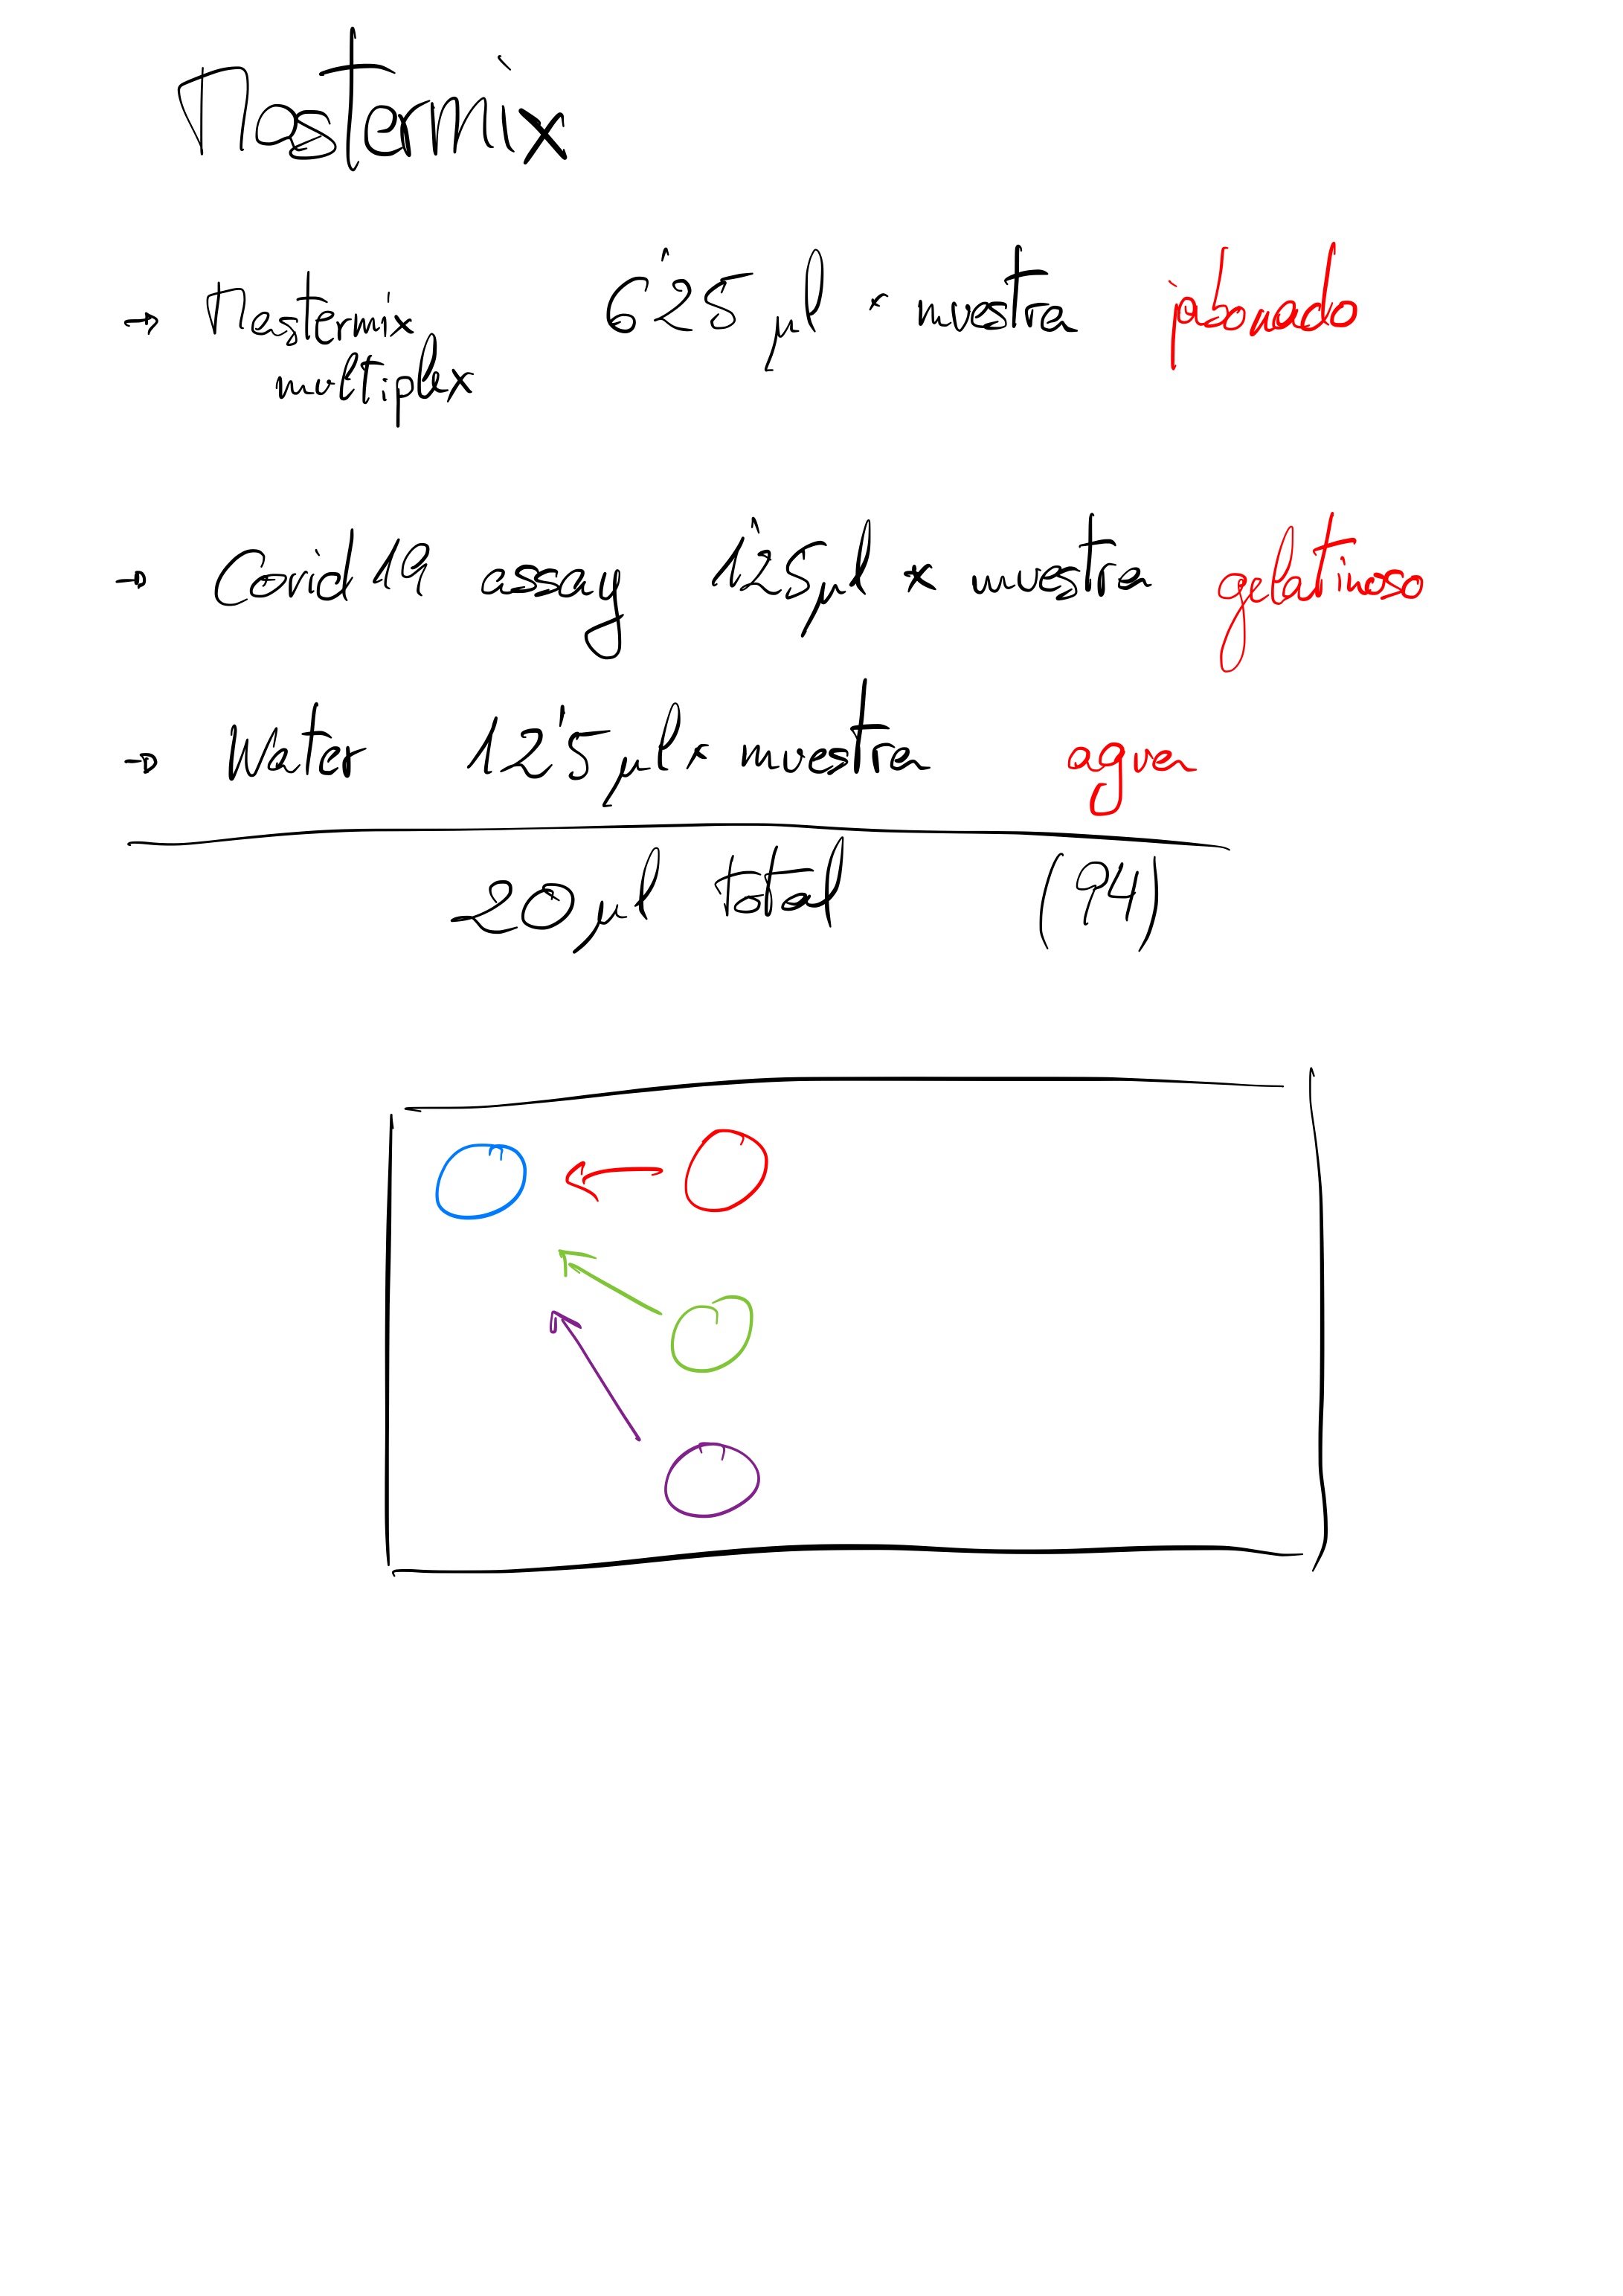 Mastermix
→ Mastermix 6'25 µl × muestra jabonado
multiplex
→ Covid 19 assay 1'25 µl × muestra gelatinoso
→ Water 12'5 µl × muestra agua
20 µl total (94)